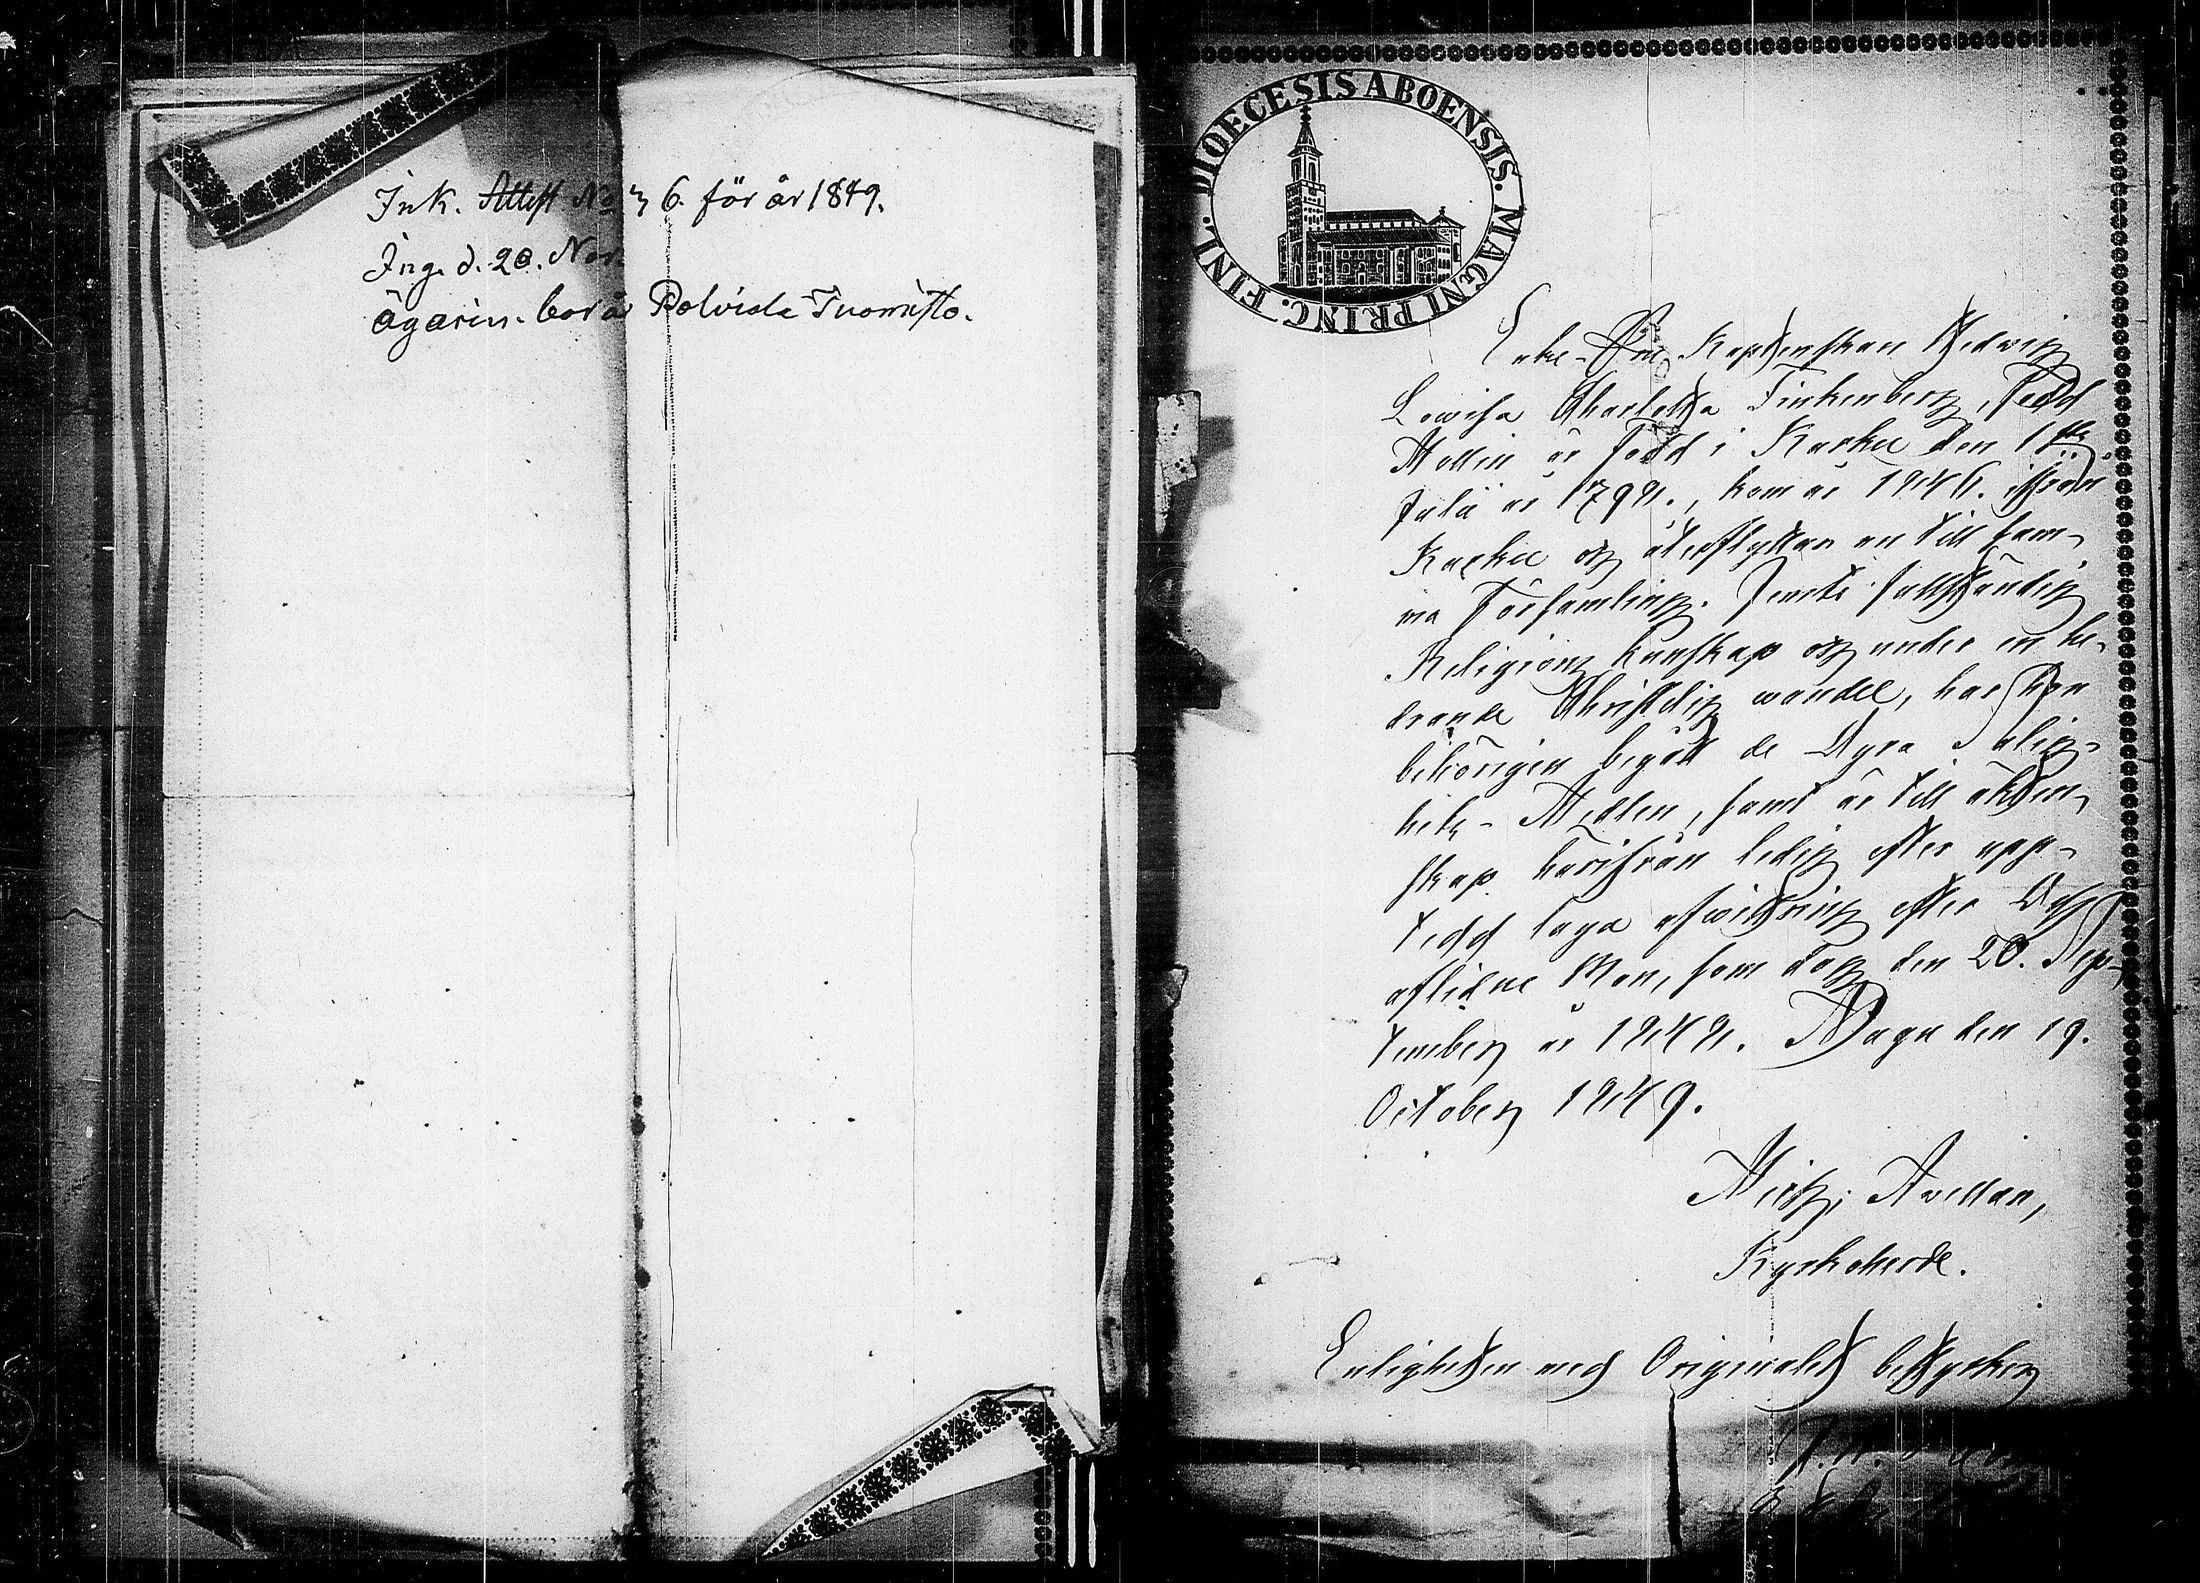 Ink. Attest No 36. för år 1849.
Ing. d. 20. Nov
Ägarin. bor å Polvisla Tuomisto.
DIOECESIS ABOENSIS. MAGNI PRINC. FINL.
Enke-Fru Kaptenskan Hedwig
Lowisa Charlotta Finkenberg, född
Mellin är född i Karku den 1ste
Julii år 1798., kom år 1846. ifrån
Karku og återflyttar nu till sam-
ma Församling. Jemte fullständig
Religions kunskap og under en he-
drande Christelig wandel, har hon
behörigen begått de Dyra Salig-
hets-Medlen, samt är till äkten-
skap härifrån ledig efter upp-
tedd laga afwittring efter Dess
aflidne Man, som dog den 20. Sep-
tember år 1848. den 19.
October 1849.
Avellan,
Kyrkoherde.
Enligheten med Originalet bestyrker